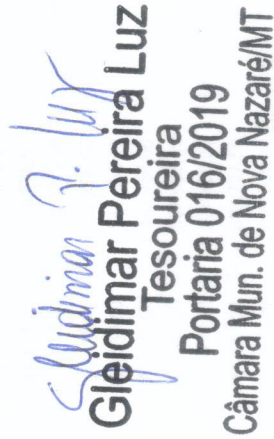 Gleidimar P. Luz
Gleidimar Pereira Luz
Tesoureira
Portaria 016/2019
Câmara Mun. de Nova Nazaré/MT